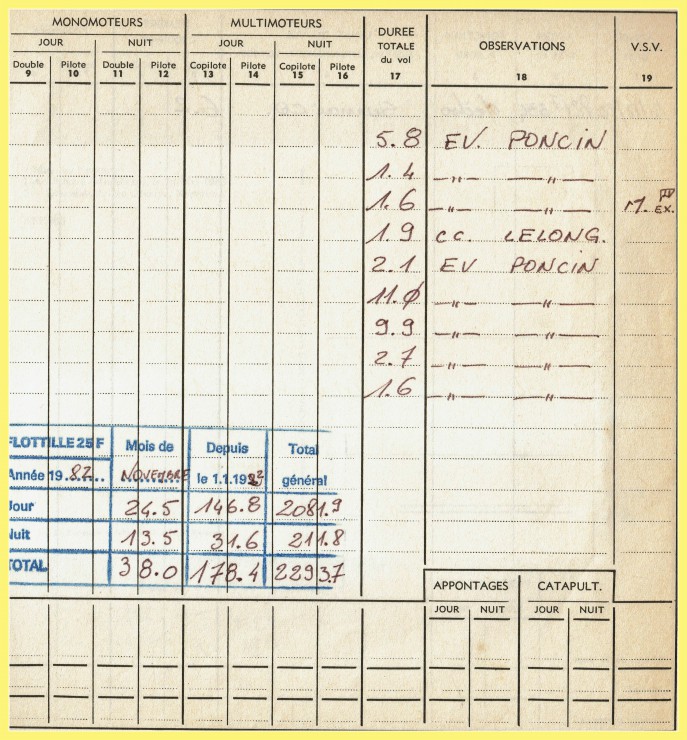 MONOMOTEURS MULTIMOTEURS DUREE TOTALE du vol OBSERVATIONS V.S.V.
JOUR NUIT JOUR NUIT
Double Pilote Double Pilote Copilote Pilote Copilote Pilote
9 10 11 12 13 14 15 16 17 18 19
5.8 EV. PONCIN
1.4 —"— —"—
1.6 —"— —"— M. EX.
1.9 CC. LELONG.
2.1 EV PONCIN
11.0 —"— —"—
9.9 —"— —"—
2.7 —"— —"—
1.6 —"— —"—
FLOTTILLE 25 F Mois de Depuis Total
Année 19.82.... NOVEMBRE le 1.1.1982 général
Jour 24.5 146.8 2081.9
Nuit 13.5 31.6 211.8
TOTAL 38.0 178.4 2293.7
APPONTAGES CATAPULT.
JOUR NUIT JOUR NUIT